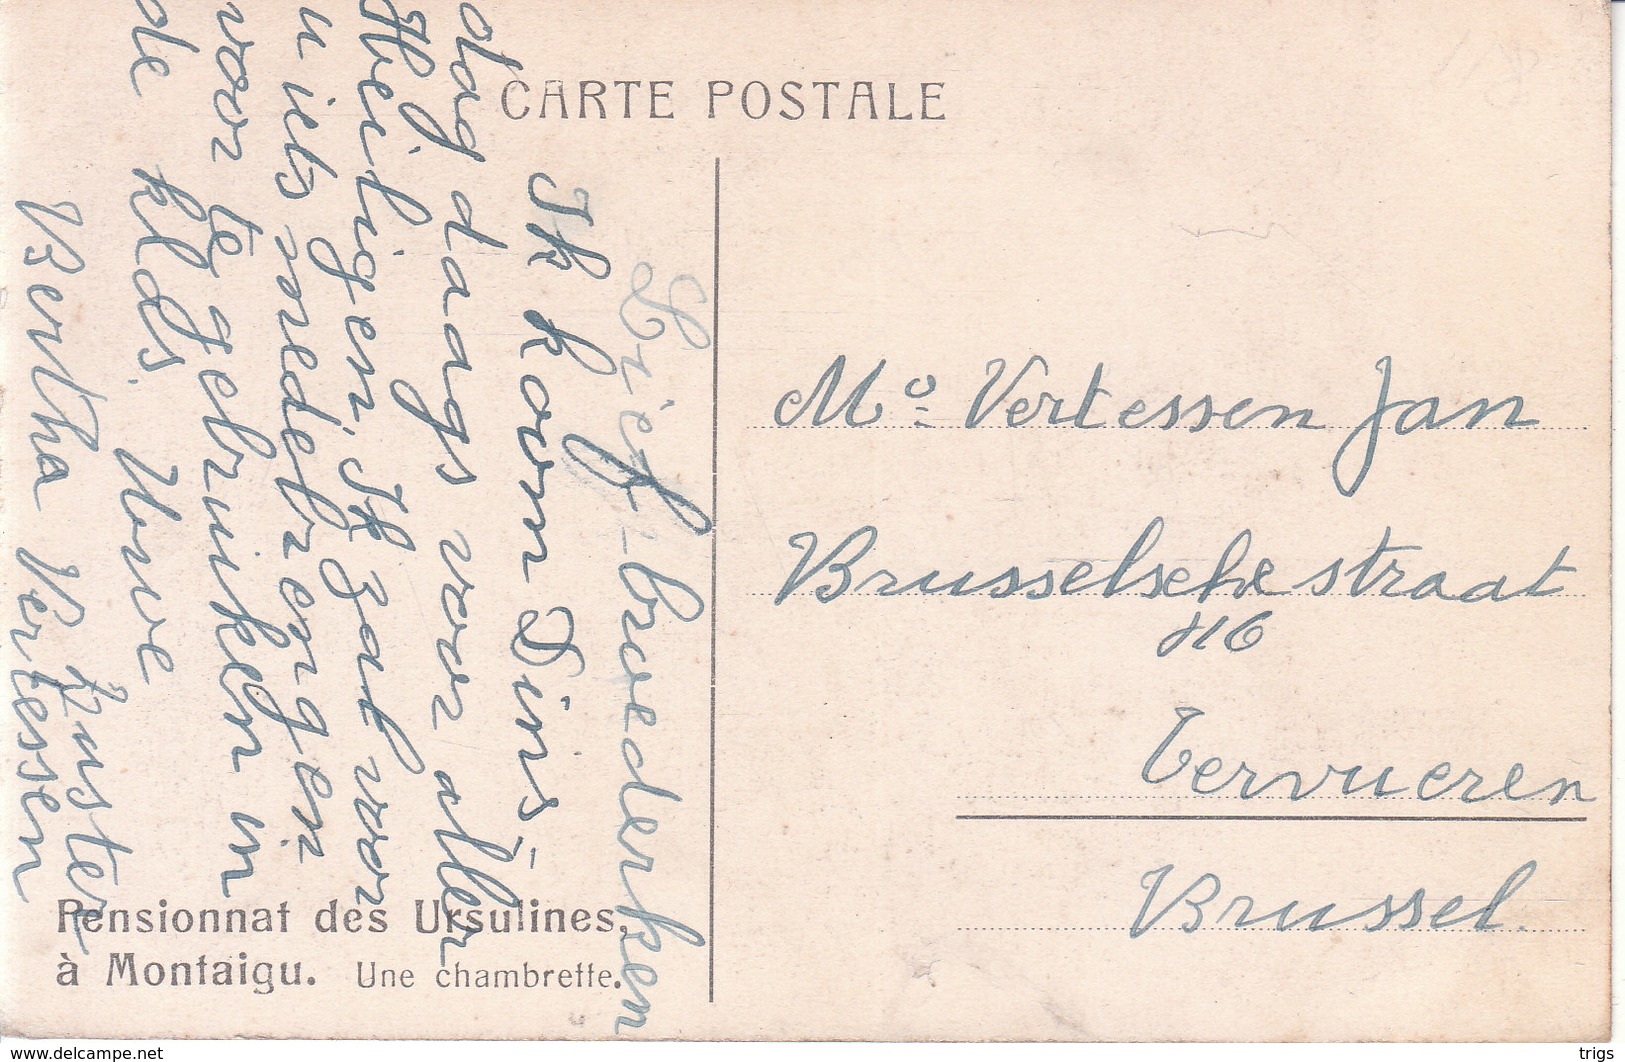 CARTE POSTALE
Lief-broederken
Ik kom Dins-
dag daags voor aller
Heiligen, Ik zal voor
u iets medebrengen
voor te gebruiken in
de klds. Uwe
zuster
Bertha Vertessen
Mº Vertessen Jan
Brusselsche straat
116
Tervueren
Brussel.
Pensionnat des Ursulines,
à Montaigu. Une chambrette.
www.delcampe.net
trigs